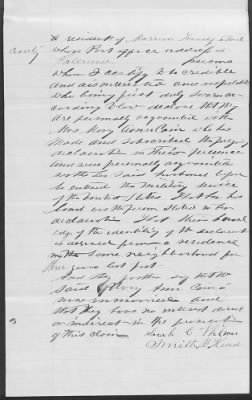 County
a resident of Warren County & State
whose Post office address is
persons
whom I certify to be credible
and disinterested and respectable
who being first duly sworn
according to law declare that they
are personally acquainted with
Mrs. Mary Ann Cain who has
made and subscribed the foregoing
declaration in their presence
and was personally acquainted
with the said husband before
he entered the Military service
of the United States that
in her
declaration that their knowl
edge of the identity of the declarant
is derived from a residence
in the same neighborhood for
three years last past
And they further say that
said Mary Ann Cain is
now unmarried and
that they have no interest direct
or indirect in the prosecution
of this claim Sarah C
Smith